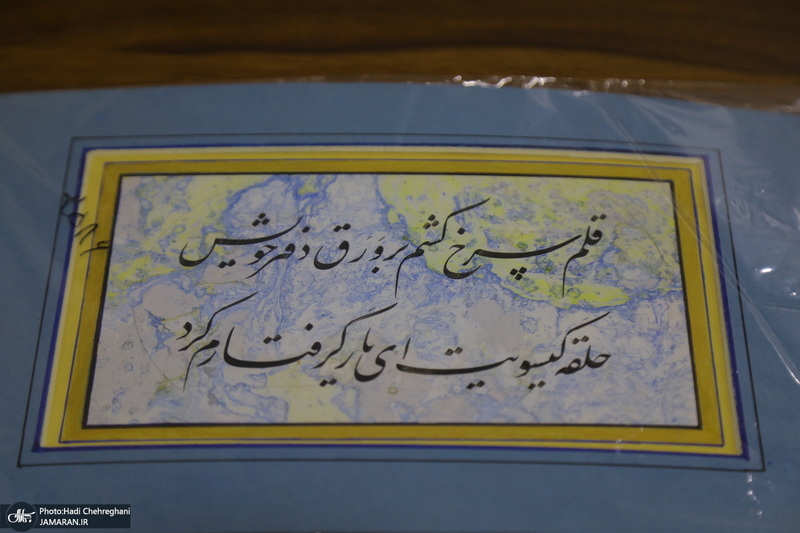 قلم سرخ کشم بر ورق دفتر خویش
حلقه گیسویت ای یار گرفتارم کرد
Photo:Hadi Chehreghani
JAMARAN.IR